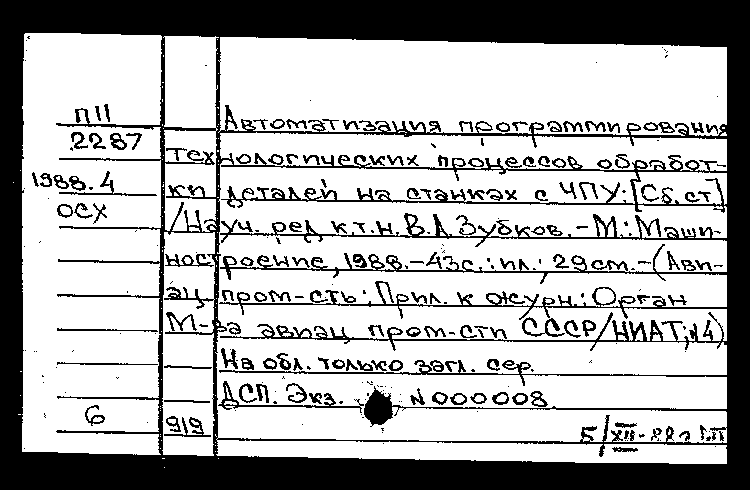 П11
2287
1988.4
ОСХ
Автоматизация программирования
технологических процессов обработ-
ки деталей на станках с ЧПУ: [Сб. ст.]
/Науч. ред. к.т.н. В.А. Зубков. - М.: Маши-
ностроение, 1988. - 43с.: ил.; 29 см. - (Ави-
ац. пром-сть: Прил. к журн.: Орган
М-ва авиац. пром-сти СССР/НИАТ; №4).
На обл. только загл. сер.
ДСП. Экз. N 000008.
6
9/9
5/XII-88г.